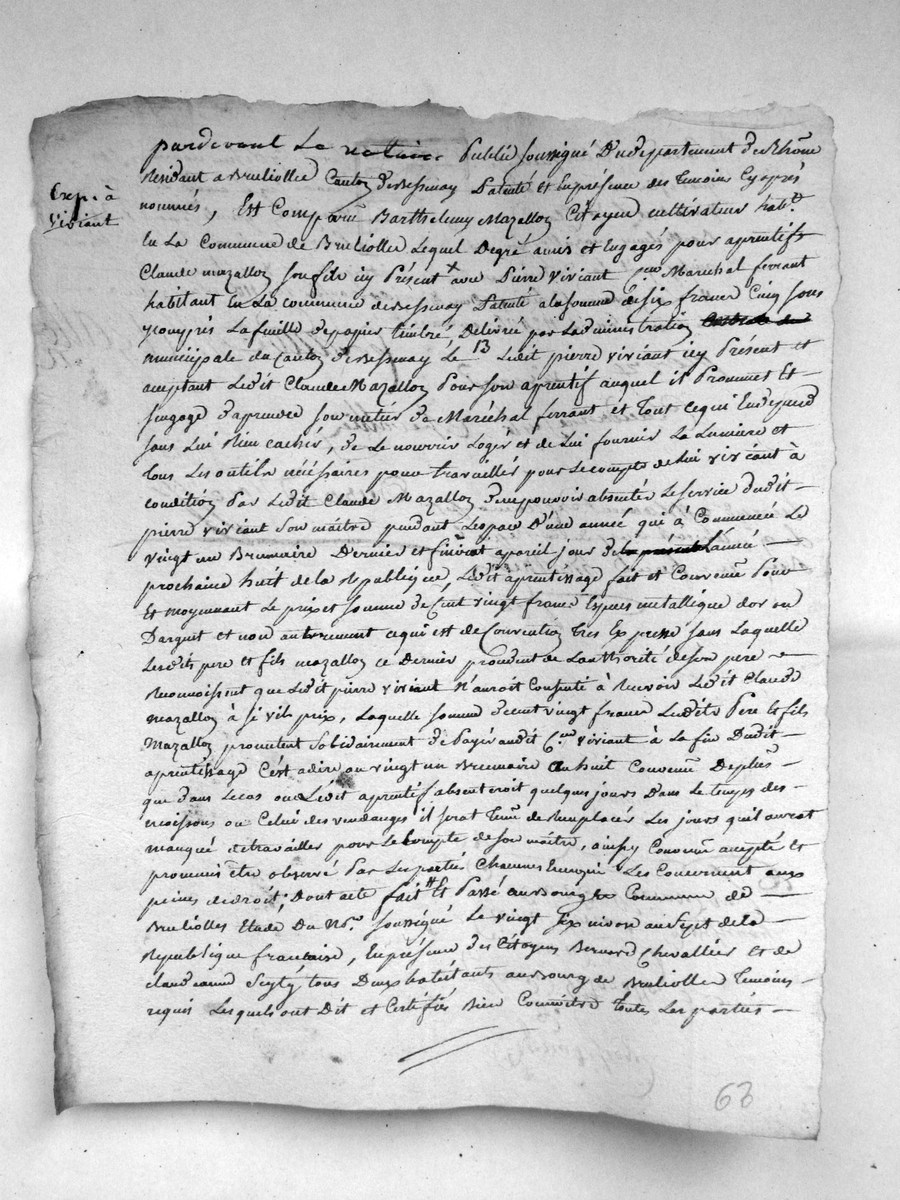 Exp. à
Viviant
pardevant Le notaire Public soussigné Dudepartement du Rhône
Residant a Brulliolle Canton de Bessenay Patenté et Enpresence des Temoins Cy après
nommés, Est Comparu Barthelemy Mazallon Citoyen cultivateur habt.
En La Commune de Brulliolle Lequel Degré amis et Engagés pour aprentifs
Claude mazallon son fils icy Présent + avec Pierre Viviant Marechal ferrant
habitant En La commune de Bessenay Patenté ala somme de six francs Cinq sous
ycompris La feuille de papier timbré, Delivrée par Ladministration
municipale du Canton de Bessenay Le 13 Ledit pierre viviant icy Présent et
aceptant Ledit Claude Mazallon Pour son aprentif auquel il Prommet Et
sengage d'aprendre son metier de Maréchal ferrant et Tout cequi En depend
sans Lui Rien cacher, de Le nourrir Loger et de Lui fournir La Lumiere et
tous Les outils nécéssaires pour travailler pour Le compte de lui viviant à
condition par Ledit Claude Mazallon de ne pouvoir absenter Le service dudit
pierre viviant son maître pendant Lespace D'une année qui à Commencé Le
vingt un Brumaire Dernier et finirat apareil jour de Lannée
prochaine huit de la republique, Ledit aprentissage fait et Convenu Pour
Et moyennant Le prix et somme de Cent vingt francs Espece metallique dor ou
Dargent et non autrement cequi est de Convention tres Expresse sans Laquelle
Lesdits pere et fils mazallon ce Dernier procedent de Lauthorité deson pere
Reconnoissent que Ledit pierre viviant N'auroit Consenti à Recevoir Ledit Claude
mazallon à si vil prix, Laquelle somme de cent vingt francs Lesdits Pere et fils
Mazallon prometent Solidairement de Payer audit Cen viviant à La fin Dudit
aprentissage C'est adire au vingt un Brumaire an huit Convenu Deplus
que dans Lecas ou Ledit aprentif absenteroit quelques jours Dans Le temps des
moissons ou Celui des vendanges il serat tenu de Remplacer Les jours quil aurat
manqué de travailler pour Le Compte de son maître, ainsy Convenu accepté et
promis Etre observé Par Les parties Chacunes En ce qui Les Concernent aux
peines de droit; Dont acte fait et Passé au Bourg Commune de
Brullioles Etude Du Nore. soussigné Le vingt six nivose an Sept de la
Republique francaise, En présence des Citoyens Bernard Chevallier et de
claude tous Deux habitants au Bourg de Brulliolle Temoins
requis Lesquels ont Dit et Certifiés Bien Connoitre toutes Les parties
62